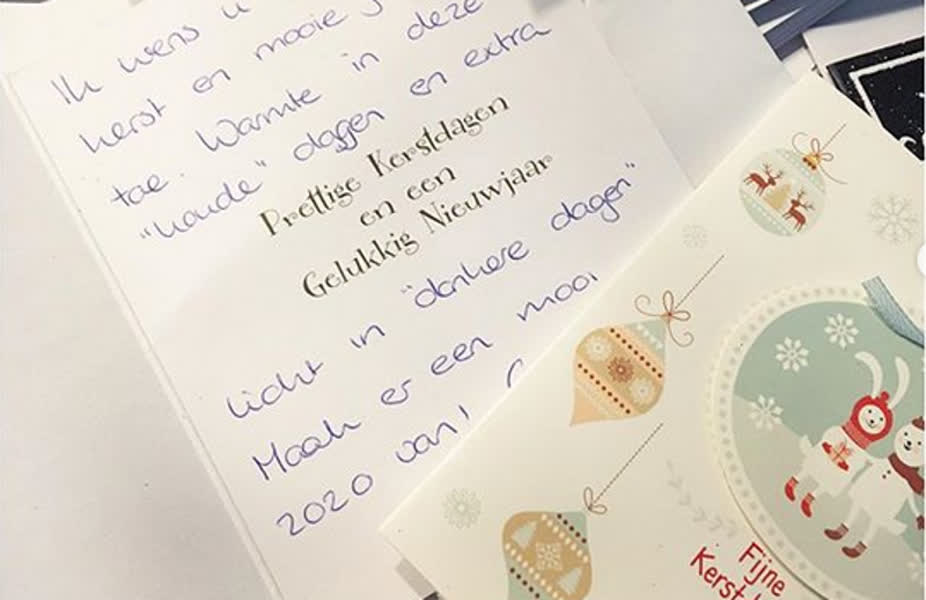 Ik wens u
kerst en mooie
toe. Warmte in deze
"koude" dagen en extra
Prettige Kerstdagen
en een
Gelukkig Nieuwjaar
licht in "donkere dagen"
Maak er een mooi
2020 van!
Fijne
Kerst